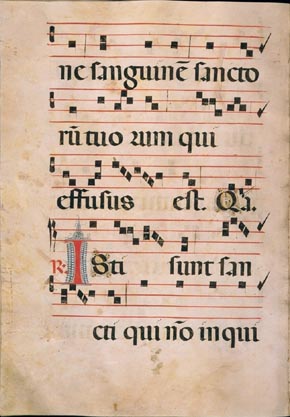 ne sanguinē sancto
rū tuo rum qui
effusus est. Qa.
R. Isti sunt san
cti qui nō in qui